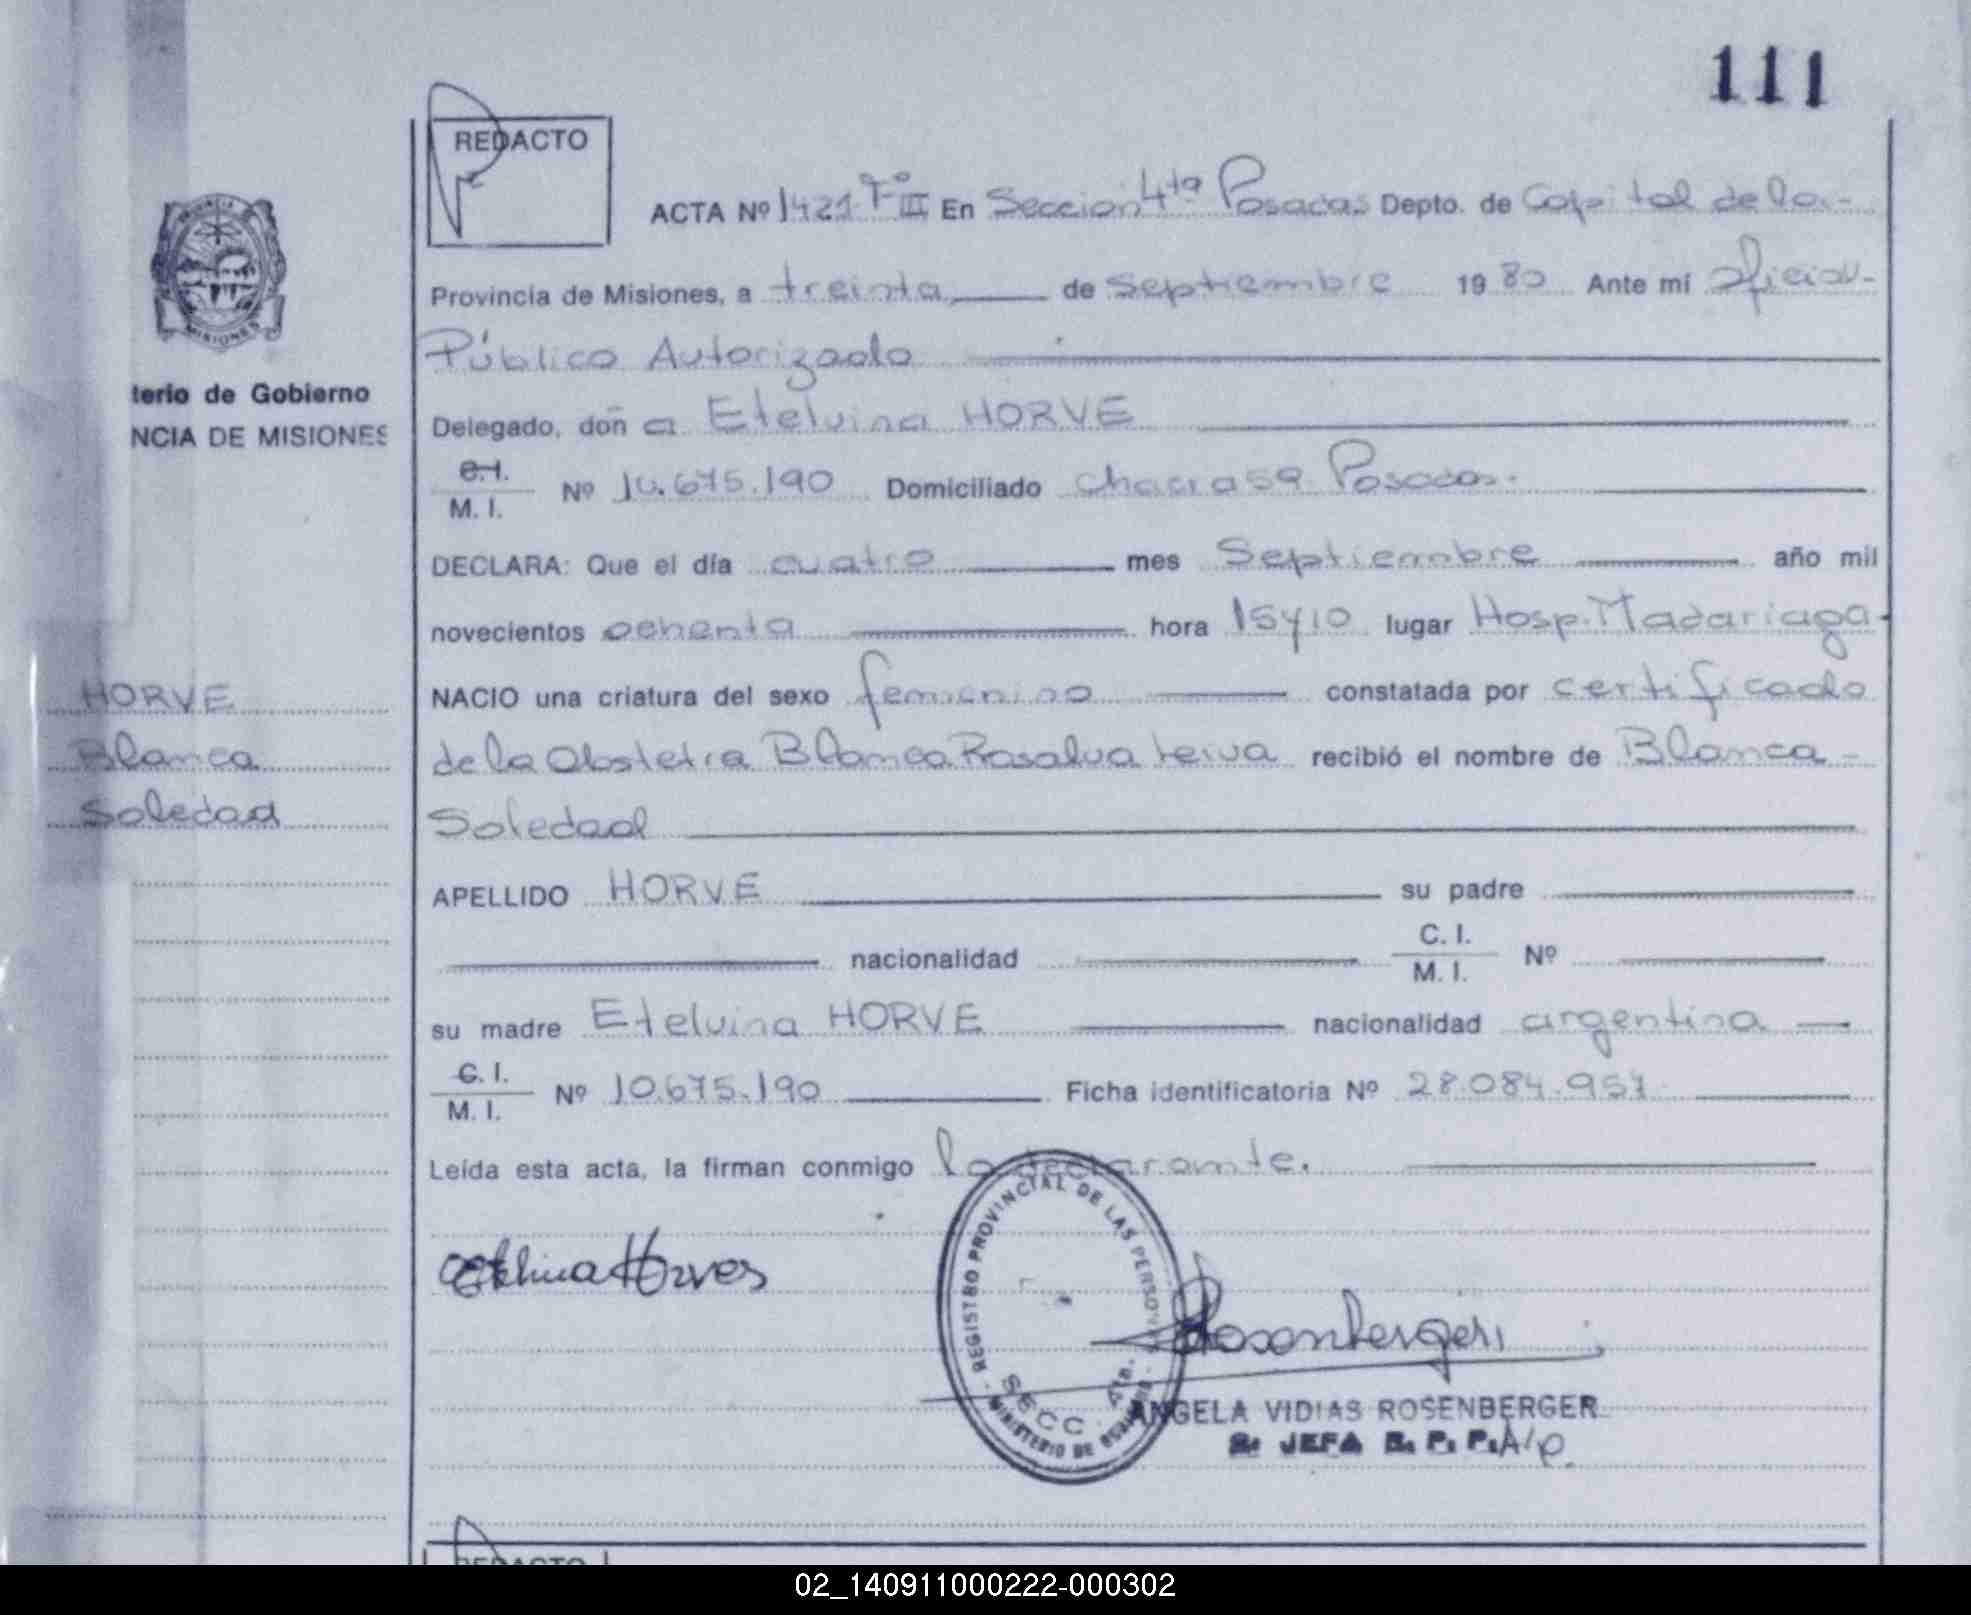 111
REDACTO
ACTA Nº 1421 Tº III En Sección 4ta Posadas Depto. de Capital de la.-
Provincia de Misiones, a treinta de Septiembre 1980 Ante mi Oficial-
Público Autorizado
terio de Gobierno
NCIA DE MISIONES
MISIONES
Delegado, doñ a Etelvina HORVE
C.I. M. I. Nº 10.675.190 Domiciliado chacra 59 Posadas.-
DECLARA: Que el día cuatro mes Septiembre año mil
novecientos ochenta hora 15y10 lugar Hosp. Madariaga-
HORVE
Blanca
Soledad
NACIO una criatura del sexo femenino constatada por certificado
de la Obstetra Blanca Rosa recibió el nombre de Blanca-
Soledad
APELLIDO HORVE su padre
nacionalidad C. I. M. I. Nº
su madre Etelvina HORVE nacionalidad argentina
C. I. M. I. Nº 10.675.190 Ficha identificatoria Nº 28.084.957
Leída esta acta, la firman conmigo la declarante.
Etelvina Horves
REGISTRO PROVINCIAL DE LAS PERSONAS
SECC. 4ta.
MINISTERIO DE
Rosenberger
ANGELA VIDIAS ROSENBERGER
2: JEFA B. P. P. A/P.
REDACTO
02_140911000222-000302